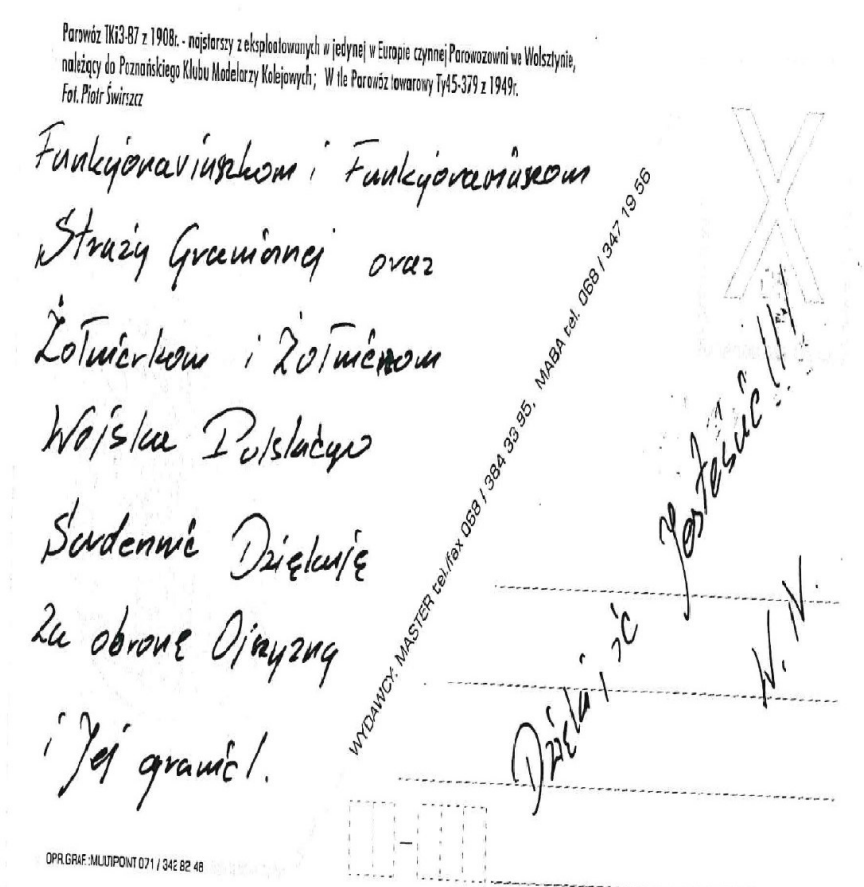 Parowóz TKi3-87 z 1908r. - najstarszy z eksploatowanych w jedynej w Europie czynnej Parowozowni we Wolsztynie,
należący do Poznańskiego Klubu Modelarzy Kolejowych; W tle Parowóz towarowy Ty45-379 z 1949r.
Fot. Piotr Świrszcz
Funkcjonariuszkom i Funkcjonariuszom
Straży Granicznej oraz
Żołnierkom i Żołnierzom
Wojska Polskiego
Serdecznie Dziękuję
Za obronę Ojczyzny
i Jej granic!.
WYDAWCY: MASTER tel./fax 068 / 384 33 95, MABA tel. 068 / 347 19 56
Dzięki że Jesteście!!!
N.N.
OPR.GRAF.:MULTIPONT 071 / 342 82 48